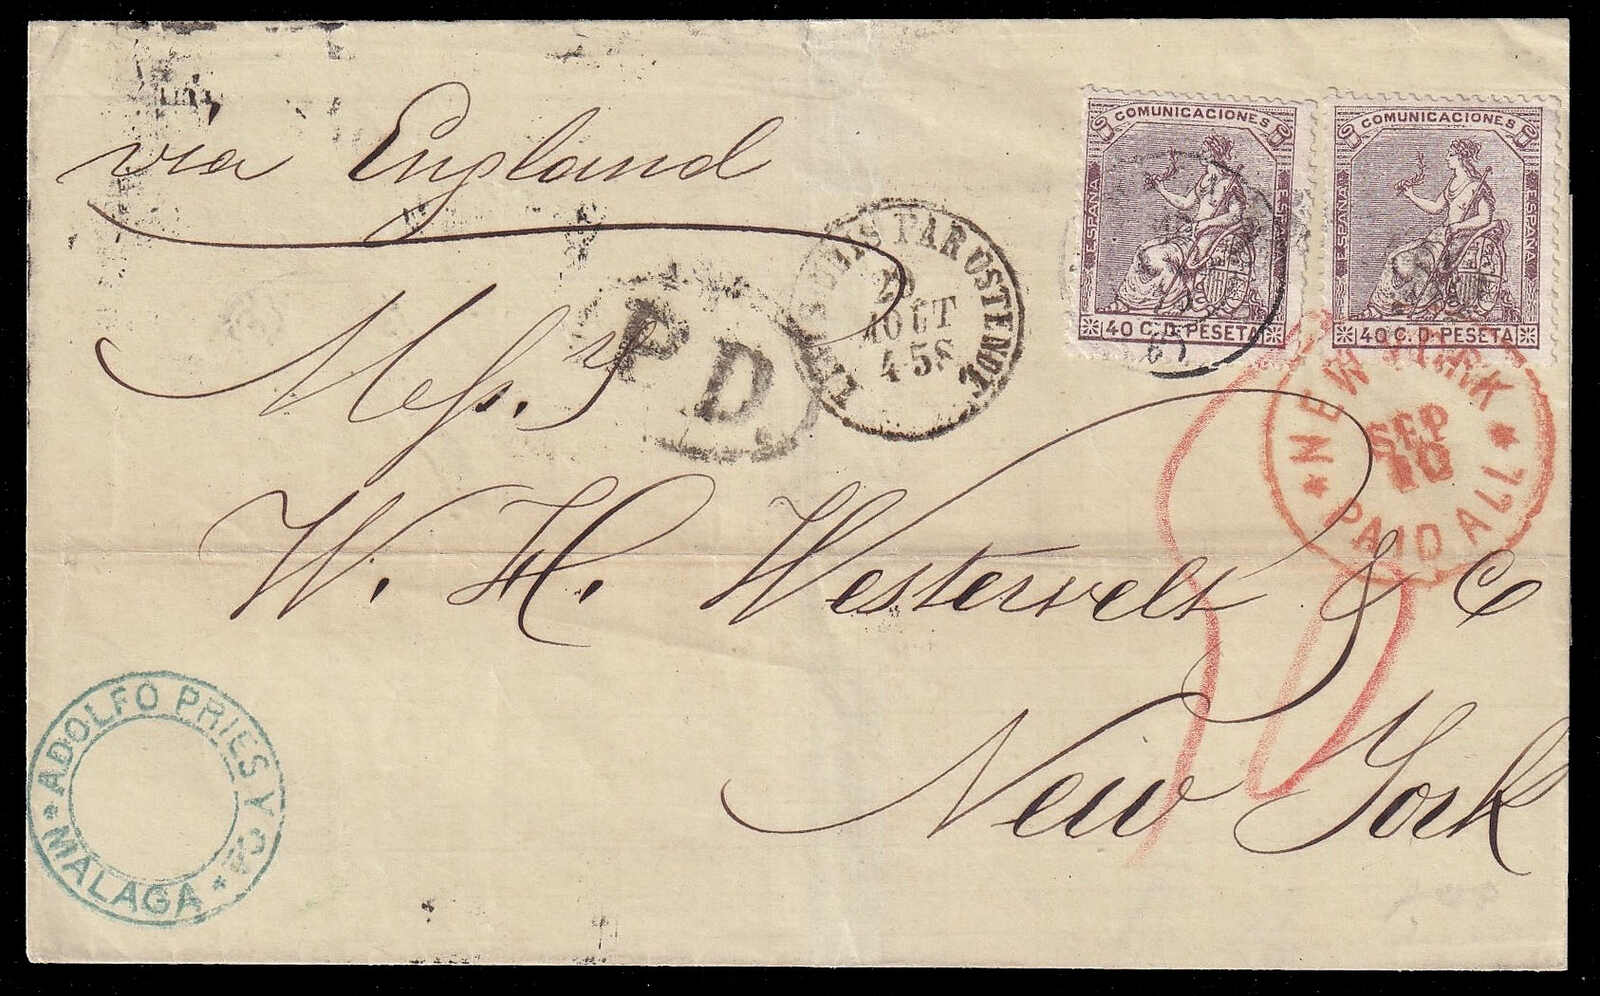 via England
COMUNICACIONES
ESPAÑA ESPAÑA
40 C. D. PESETA
COMUNICACIONES
ESPAÑA ESPAÑA
40 C. D. PESETA
PAR OSTENDE
AOUT
4-5S
P.D.
Mess.rs
NEW YORK
SEP
10
PAID ALL
W. H. Westervelt & Co
New York
ADOLFO PRIES Y CA
MALAGA